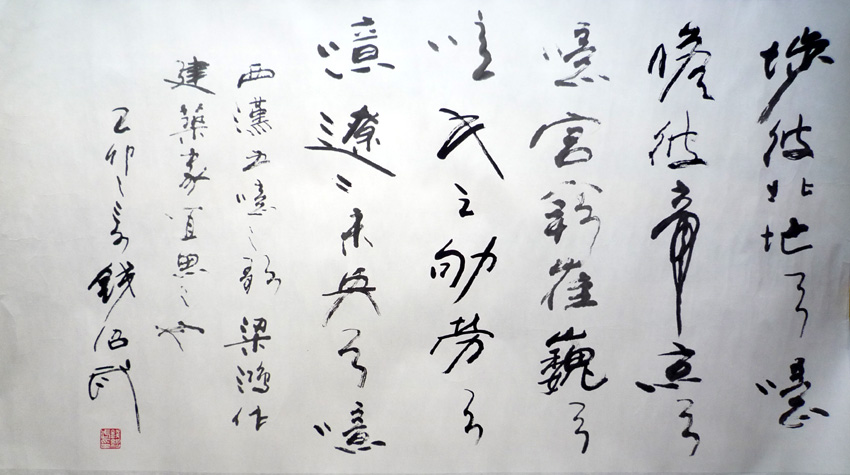 陟彼北地兮噫
瞻彼帝京兮
噫宮闕崔巍兮
噫民之劬勞兮
噫遼々未央兮噫
西漢五噫之歌梁鴻作
建築家宜思之也
己卯之錢紹武